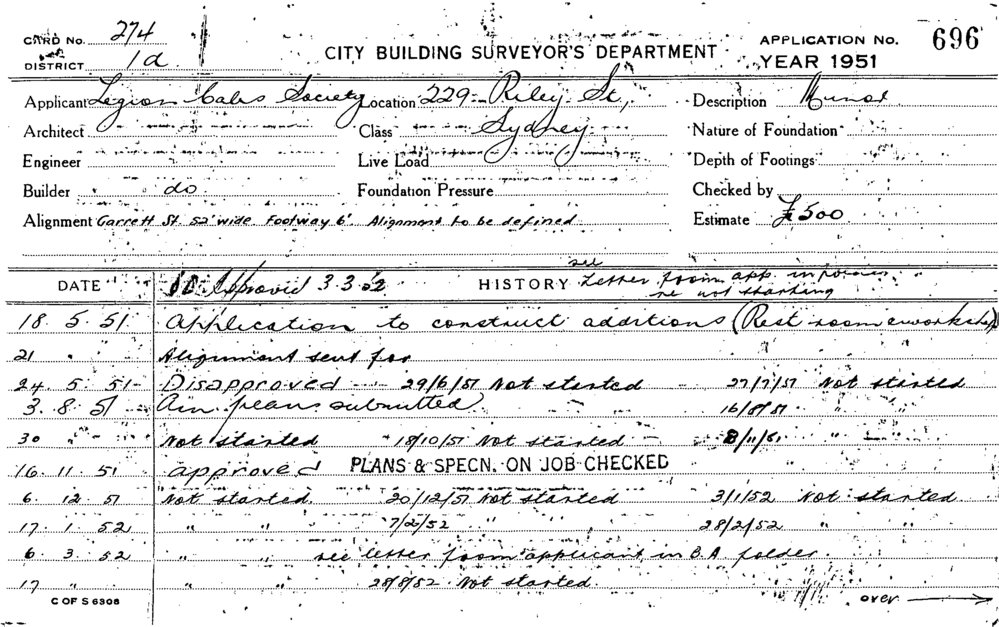 CARD No. 274
DISTRICT 1d
CITY BUILDING SURVEYOR'S DEPARTMENT
APPLICATION No. 696
YEAR 1951
Applicant Legion Cabs Society Location 229 Riley St, Description Minor
Architect Class Sydney Nature of Foundation
Engineer Live Load Depth of Footings
Builder do Foundation Pressure Checked by
Alignment Garrett St. 52' wide Footway 6' Alignment to be defined Estimate £500
see
DATE Approved 3.3.52 HISTORY Letter from app.
re not starting
18.5.51 Application to construct additions (Rest room & workshop)
21 " Alignment sent for
24.5.51 Disapproved 29/6/51 Not started 27/7/51 Not started
3.8.51 Am plans submitted 16/8/51 " "
30 " " Not started 18/10/51 Not started 8/11/51 "
16.11.51 approved PLANS & SPECN. ON JOB CHECKED
6.12.51 Not started 20/12/51 Not started 3/1/52 Not started
17.1.52 " " 7/2/52 " " 28/2/52 " "
6.3.52 " " see letter from applicant in B.A folder.
17 " " " 28/8/52 Not started.
C OF S 6308 over